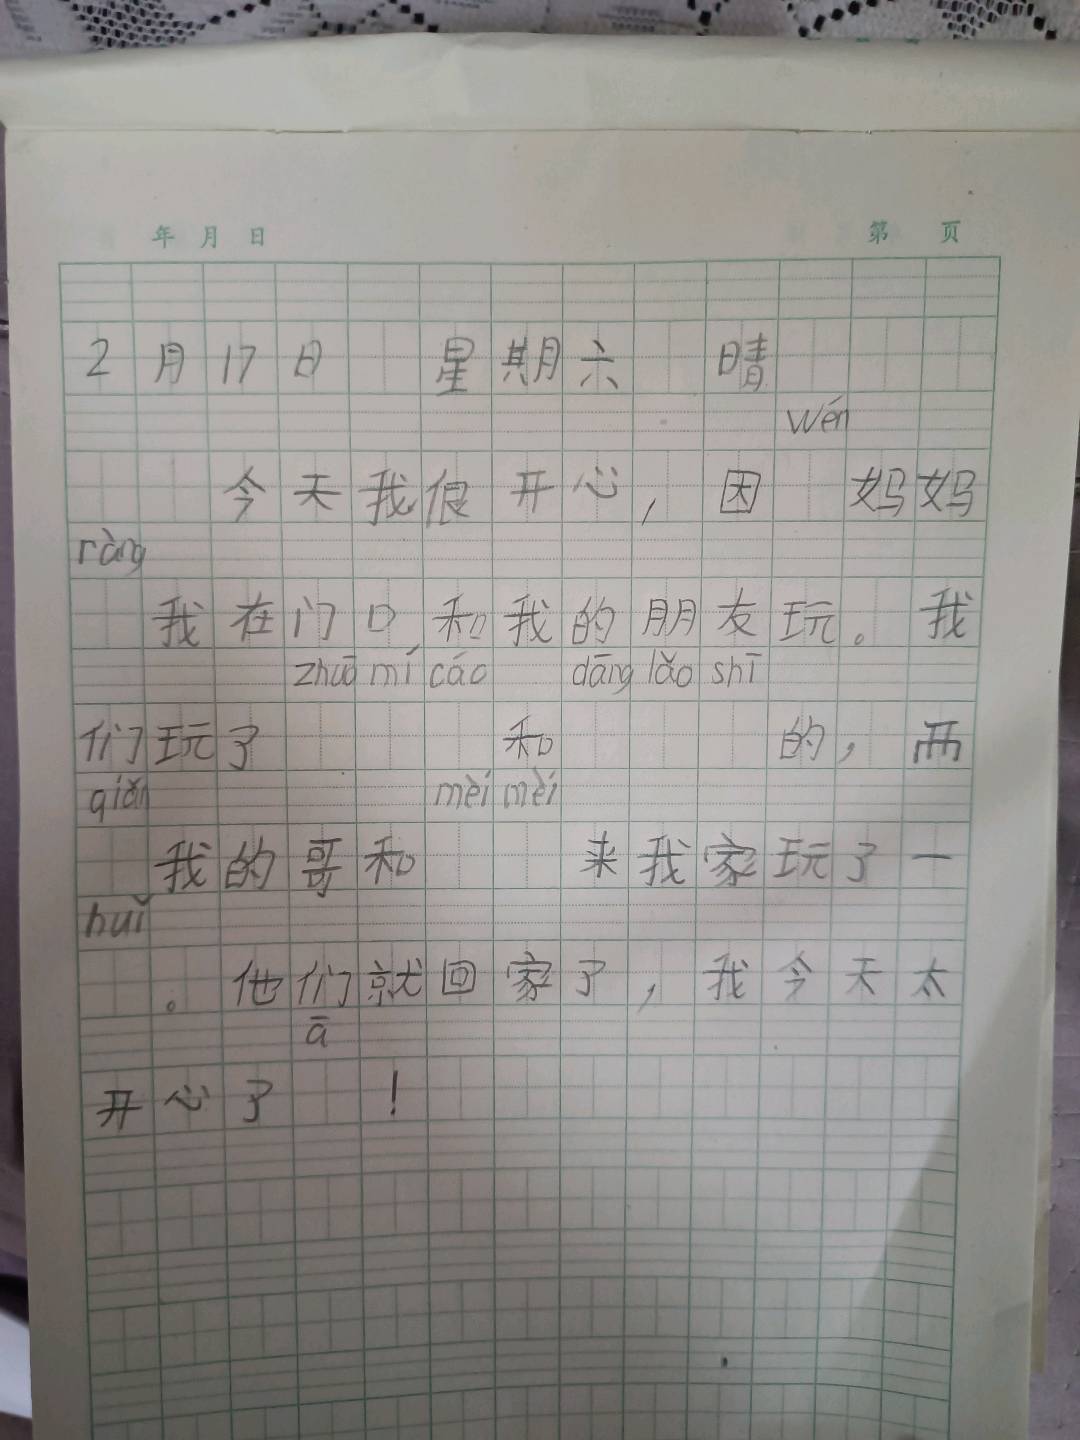 年 月 日 第 页
2月17日 星期六 晴
wén
今天我很开心，因 妈妈
ràng
我在门口和我的朋友玩。我
zhuō mí cáo dāng lǎo shī
们玩了 和 的，两
qiǎn mèi mèi
我的哥和 来我家玩了一
huǐ
。他们就回家了，我今天太
ā
开心了 ！